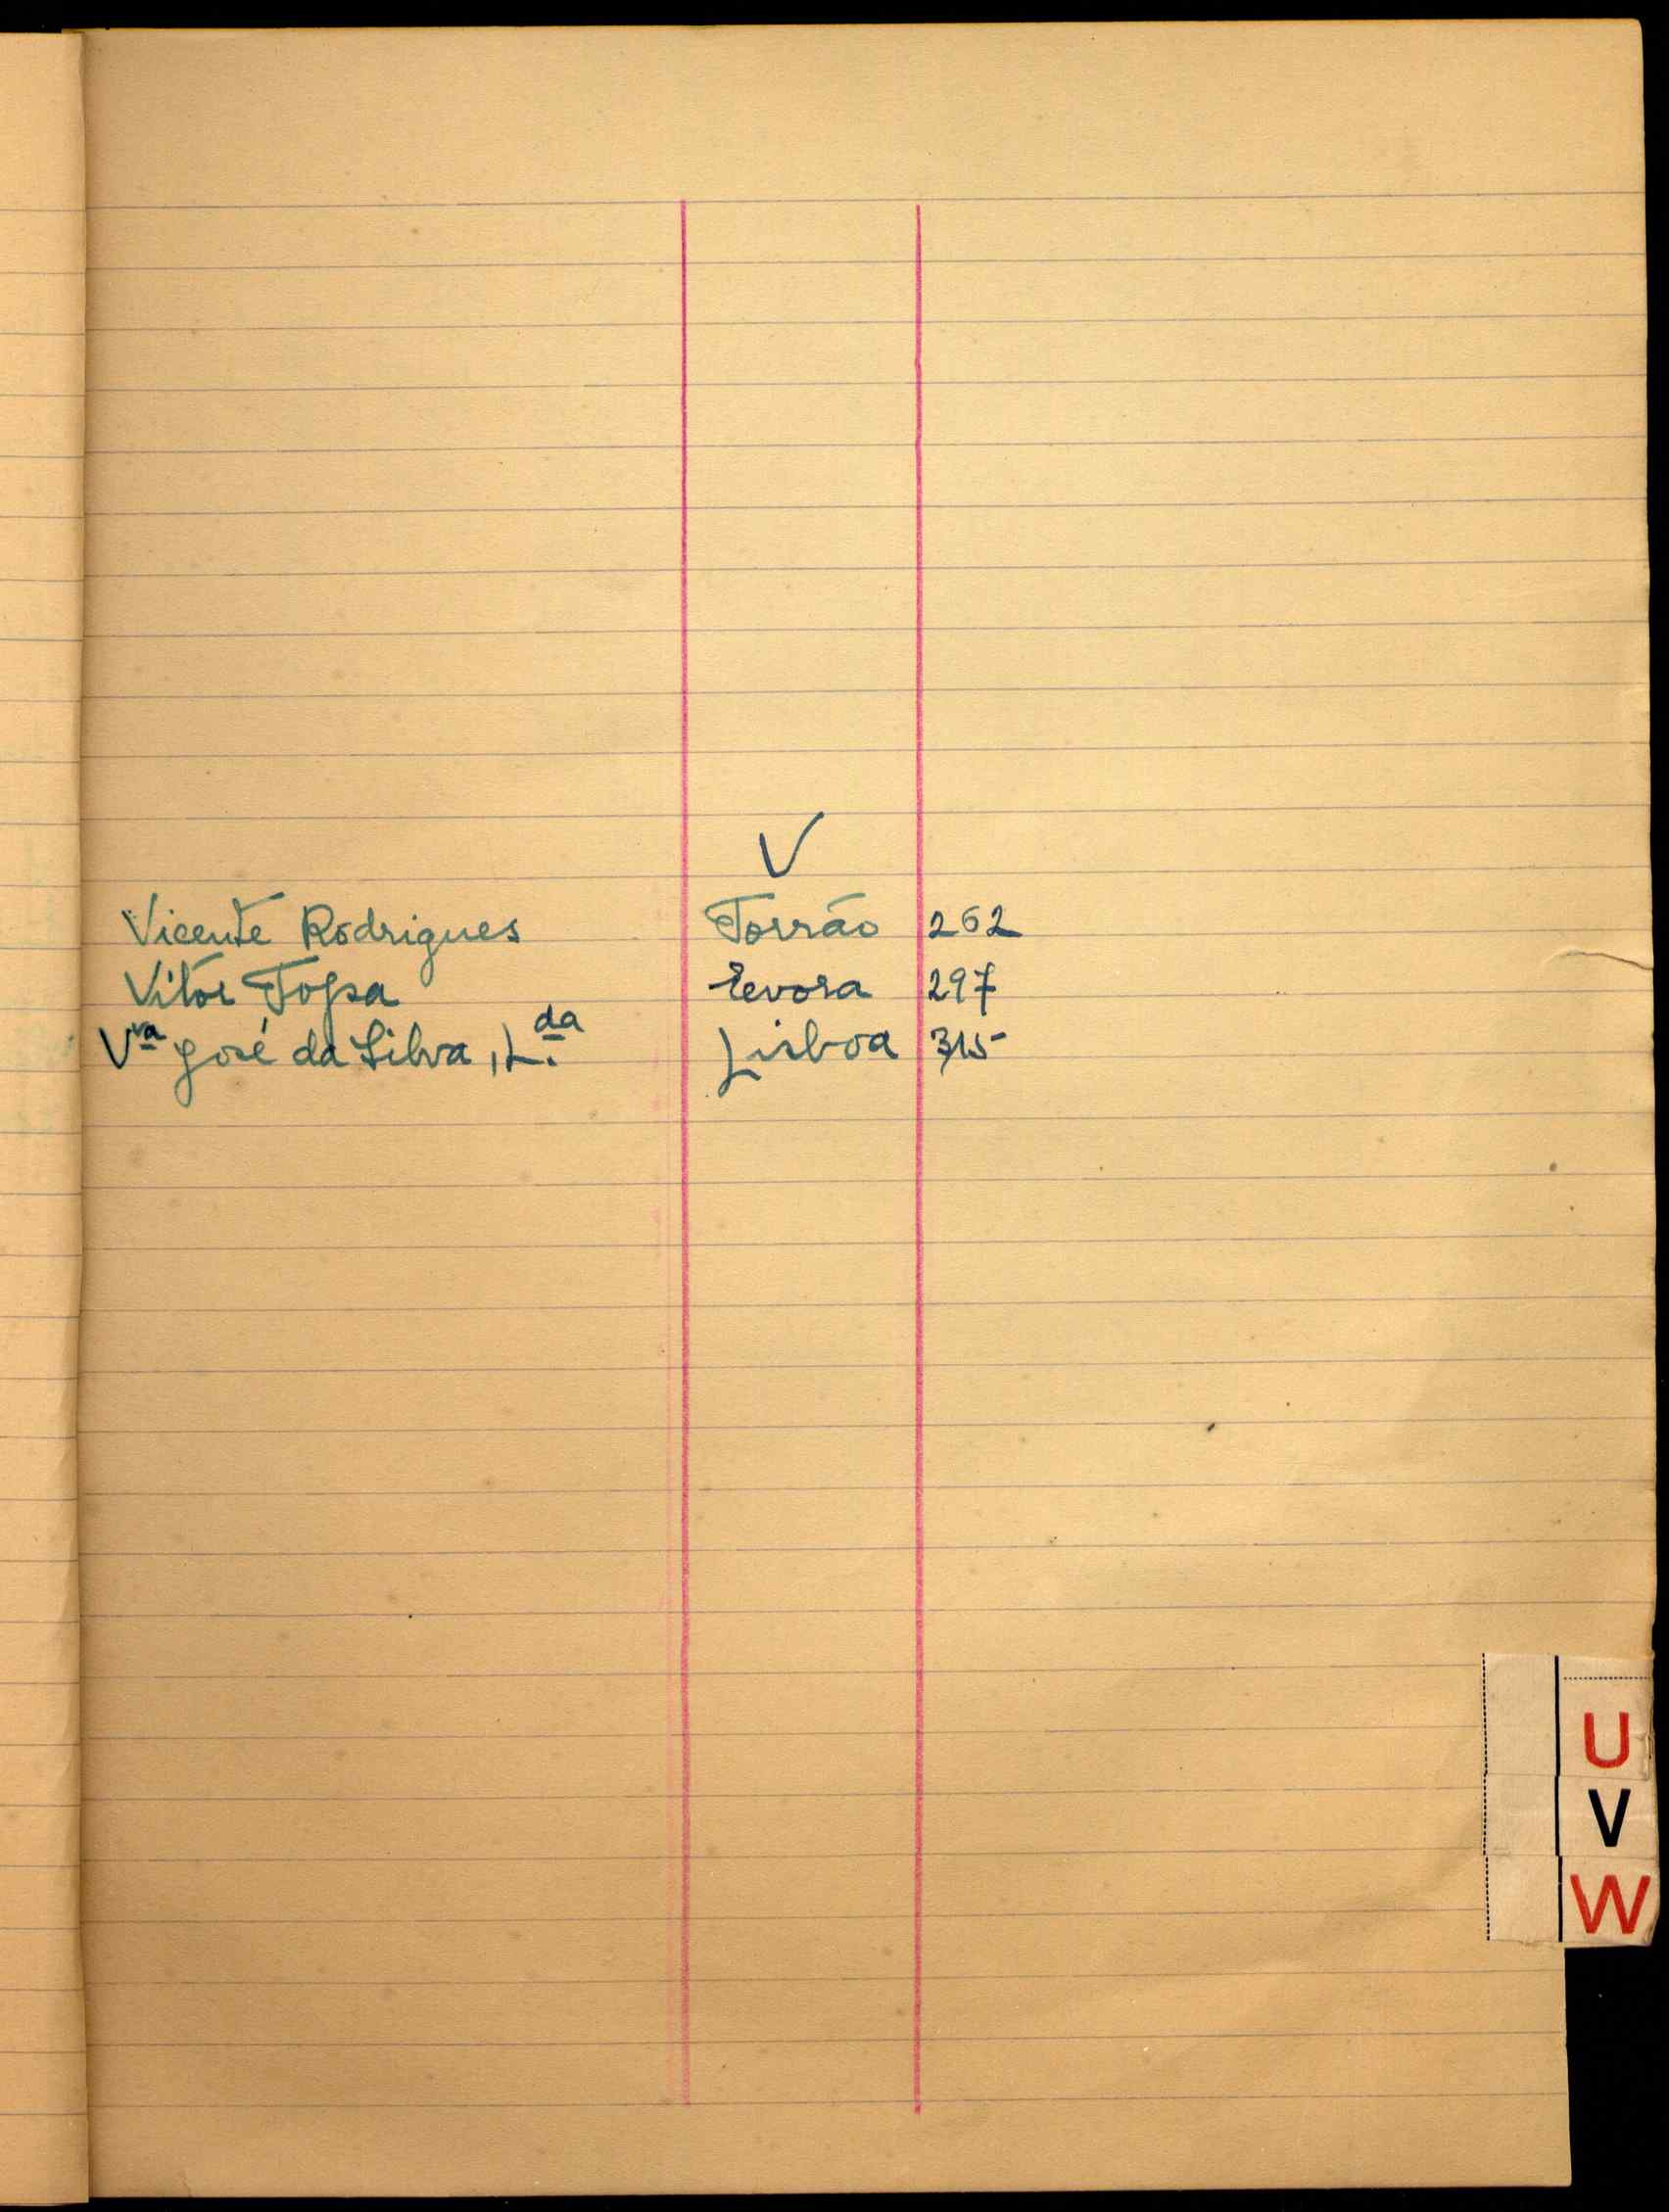 V
Vicente Rodrigues Torrão 262
Vitor Topa Evora 297
Vva José da Silva, L.da Lisboa 315
U
V
W